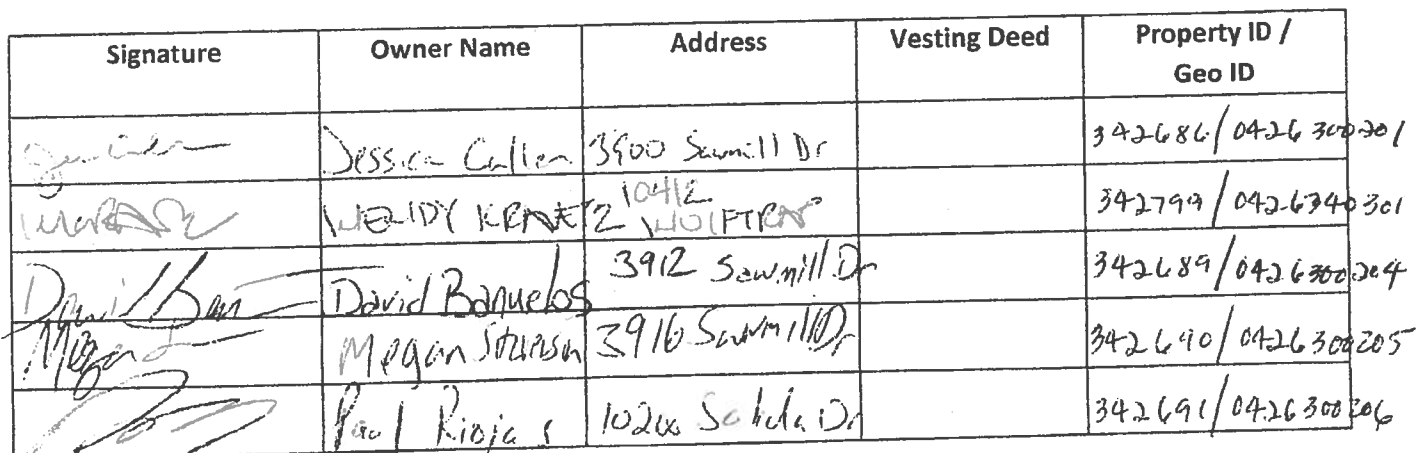 Signature Owner Name Address Vesting Deed Property ID / Geo ID
Jessica Cullen 3900 Sawmill Dr 342686/0426300201
WENDY KRAETZ 10412 WOLFTRAP 342799/0426340301
David Banuelos 3912 Sawmill Dr 342689/0426300204
Megan Stevenson 3916 Sawmill Dr 342690/0426300205
Paul Riojas Dr 342691/0426300206